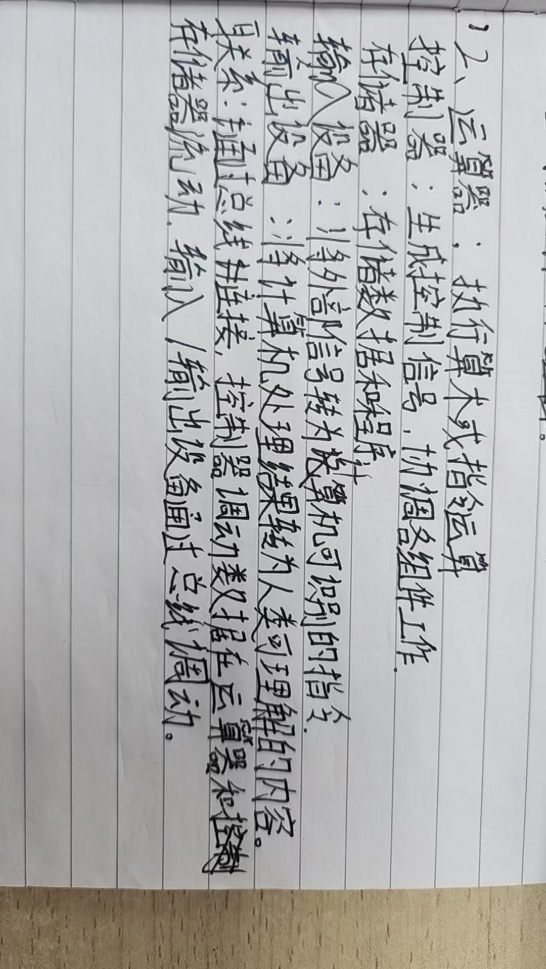 12、运算器：执行算术或指令运算
控制器：生成控制信号，协调各组件工作.
存储器：存储数据和程序
输入设备：将外部信号转为计算机可识别的指令.
输出设备：将计算机处理结果转为人类可理解的内容。
关系：通过总线连接，控制器调动数据在运算器和
存储器流动. 输入/输出设备通过总线调动。